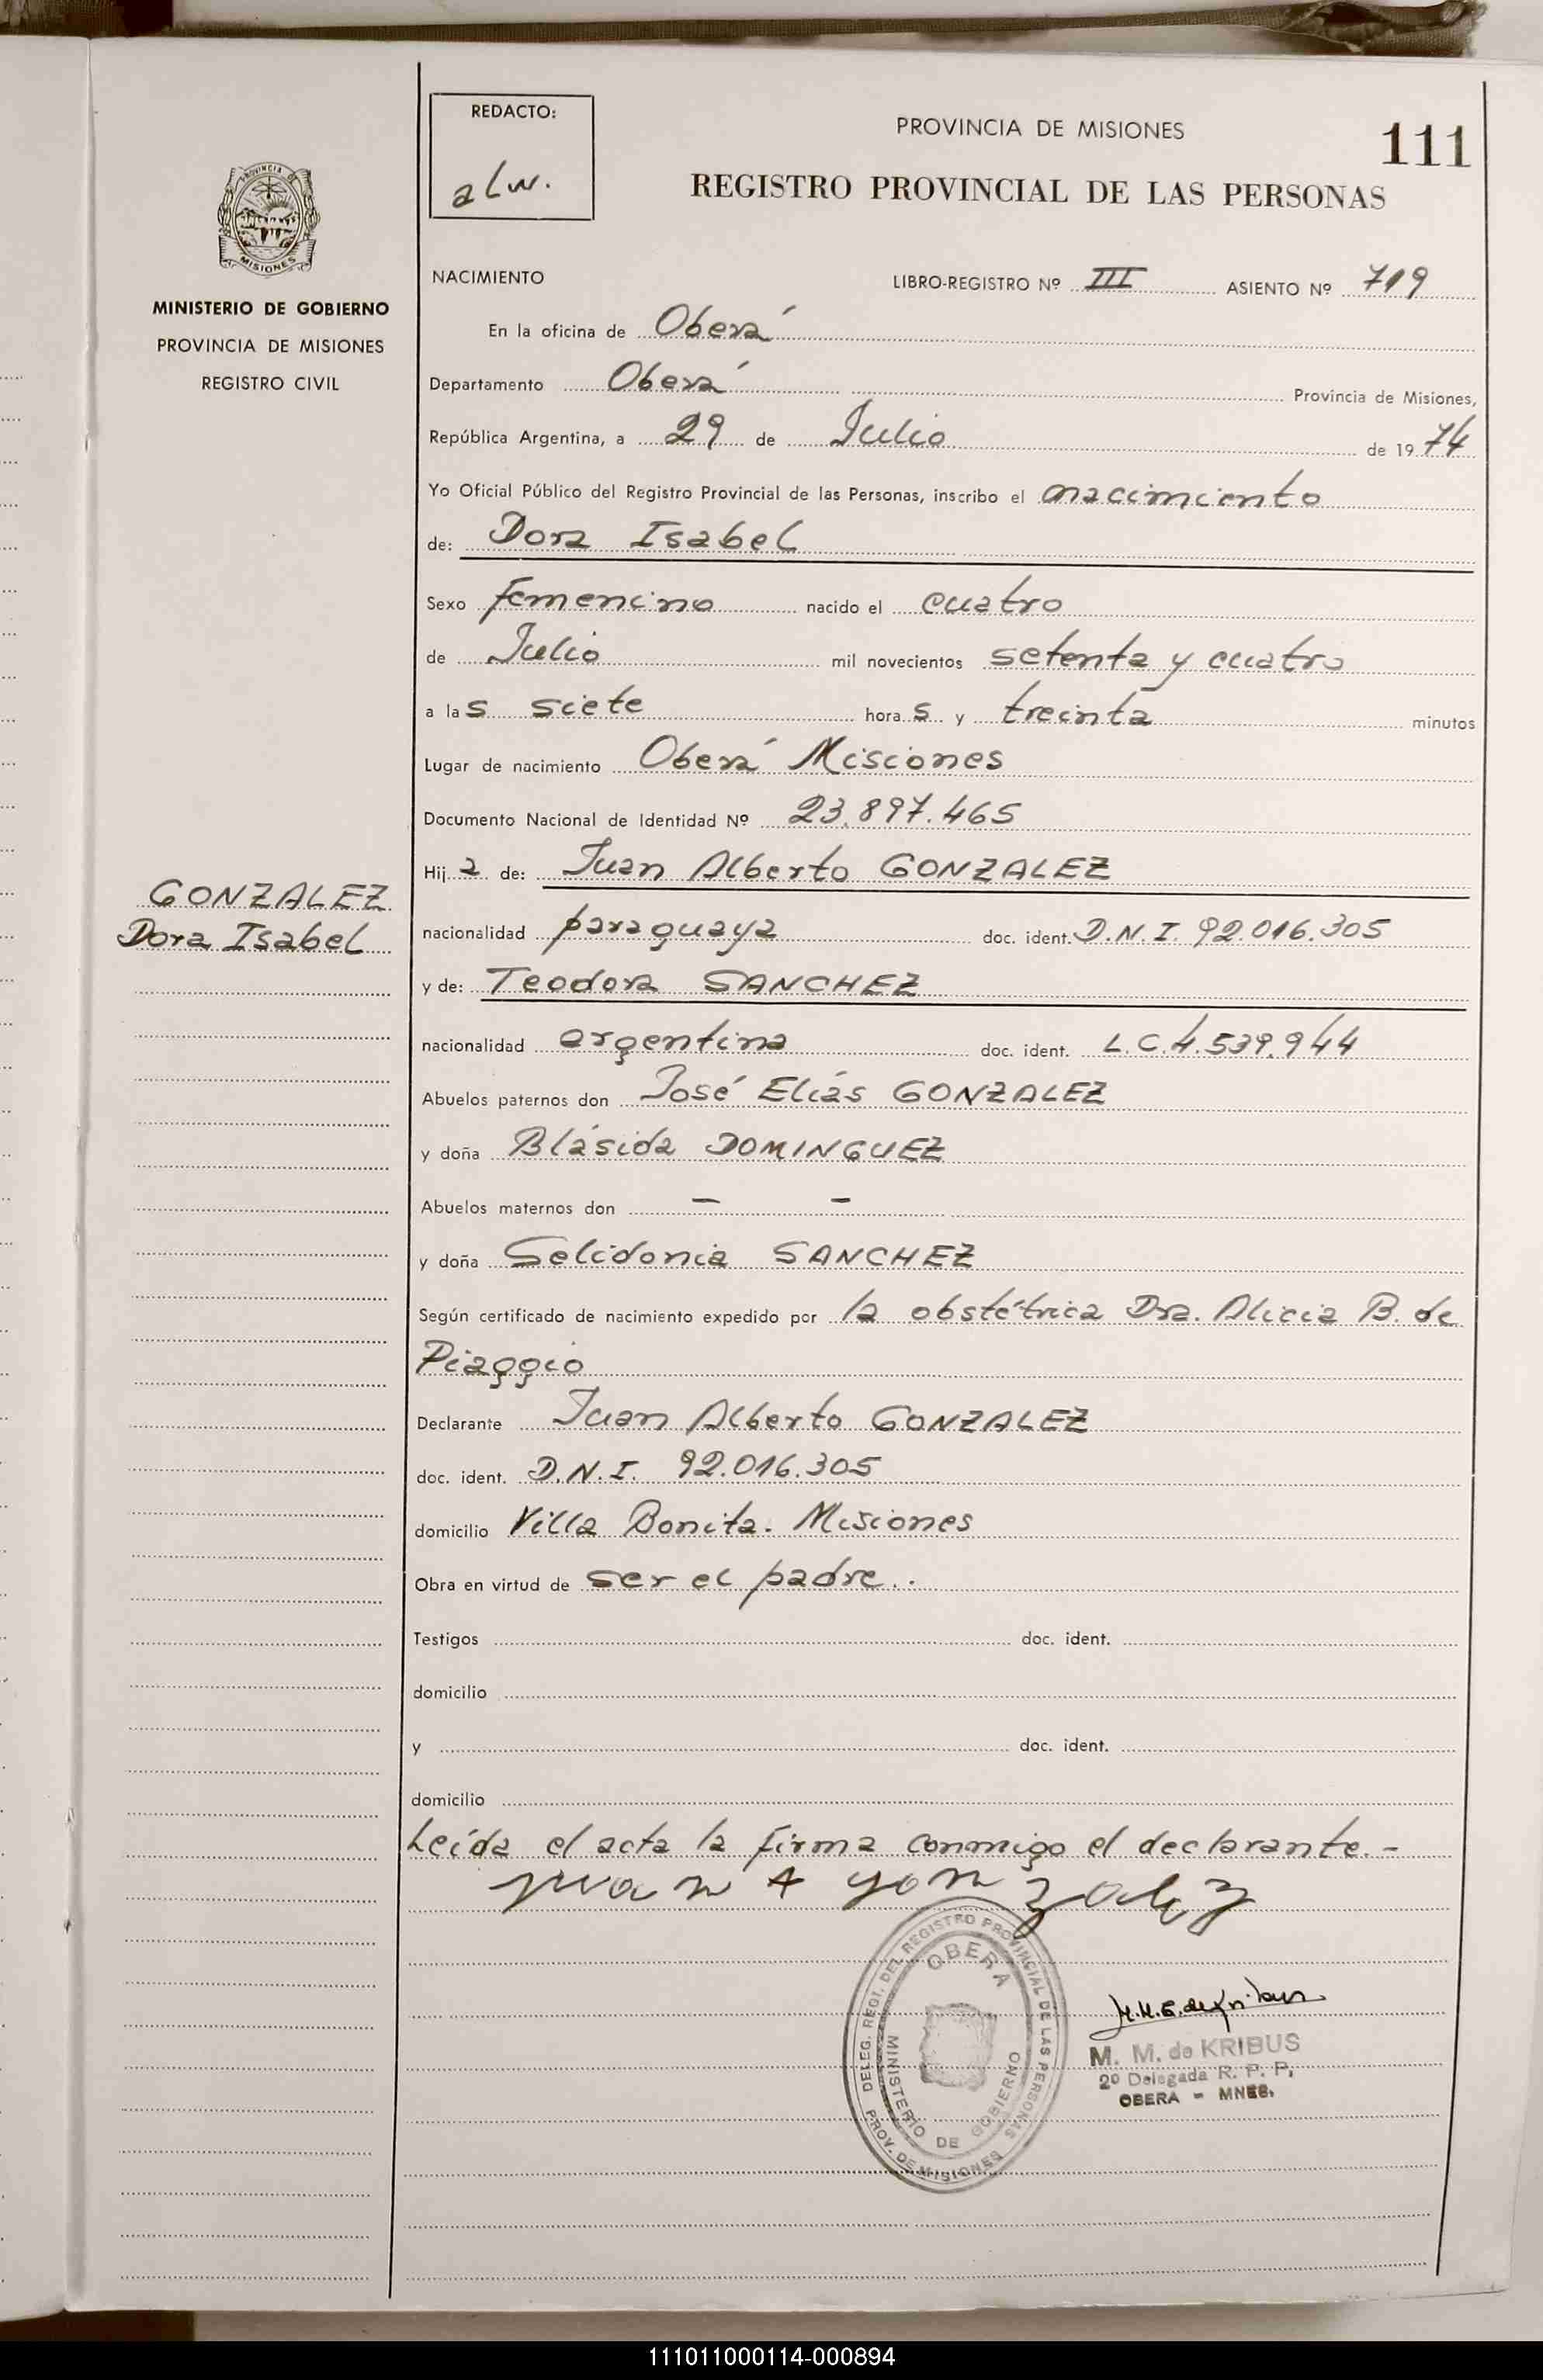 REDACTO:
alw.
PROVINCIA DE MISIONES
111
REGISTRO PROVINCIAL DE LAS PERSONAS
PROVINCIA DE
MISIONES
MINISTERIO DE GOBIERNO
PROVINCIA DE MISIONES
REGISTRO CIVIL
NACIMIENTO LIBRO-REGISTRO Nº III ASIENTO Nº 719
En la oficina de Oberá
Departamento Oberá Provincia de Misiones,
República Argentina, a 29 de Julio de 1974
Yo Oficial Público del Registro Provincial de las Personas, inscribo el nacimiento
de: Dora Isabel
Sexo femenino nacido el cuatro
de Julio mil novecientos setenta y cuatro
a las siete horas y treinta minutos
Lugar de nacimiento Oberá Misiones
Documento Nacional de Identidad Nº 23.897.465
Hija de: Juan Alberto GONZALEZ
GONZALEZ
Dora Isabel
nacionalidad paraguaya doc. ident. D.N.I. 92.016.305
y de: Teodora SANCHEZ
nacionalidad argentina doc. ident. L.C.4.539.944
Abuelos paternos don José Elías GONZALEZ
y doña Blásida DOMINGUEZ
Abuelos maternos don - -
y doña Selidonia SANCHEZ
Según certificado de nacimiento expedido por la obstétrica Dra. Alicia B. de
Piaggio
Declarante Juan Alberto GONZALEZ
doc. ident. D.N.I. 92.016.305
domicilio Villa Bonita. Misiones
Obra en virtud de ser el padre..
Testigos doc. ident.
domicilio
y doc. ident.
domicilio
Leída el acta la firma conmigo el declarante.-
juan A gonzalez
DELEG. REGI. DEL REGISTRO PROVINCIAL DE LAS PERSONAS
OBERA
MINISTERIO DE GOBIERNO
PROV. DE MISIONES
M. M. de KRIBUS
2º Delegada R. P. P.
OBERA - MNES.
111011000114-000894